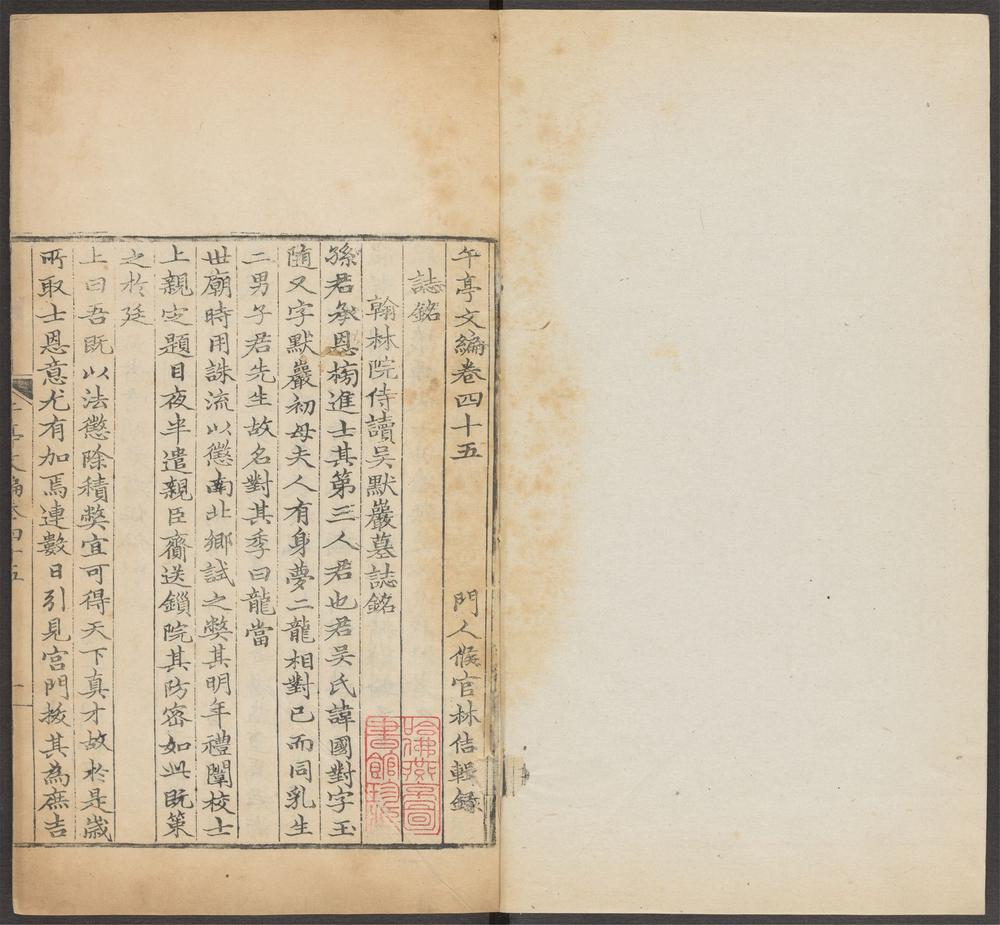 午亭文編卷四十五
門人候官林佶輯錄
誌銘
翰林院侍讀吳默巖墓誌銘
孫君承恩榜進士其第三人君也君吳氏諱國對字玉
隨又字默巖初母夫人有身夢二龍相對已而同乳生
二男子君先生故名對其季曰龍當
世廟時用誅流以懲南北鄉試之弊其明年禮闈校士
上親定題目夜半遣親臣齎送鎖院其防密如此既策
之於廷
上曰吾既以法懲除積弊宜可得天下真才故於是歲
所取士恩意尤有加焉連數日引見宮門拔其為庶吉
午亭文編卷四十五
一
哈佛燕京圖
書館珍藏